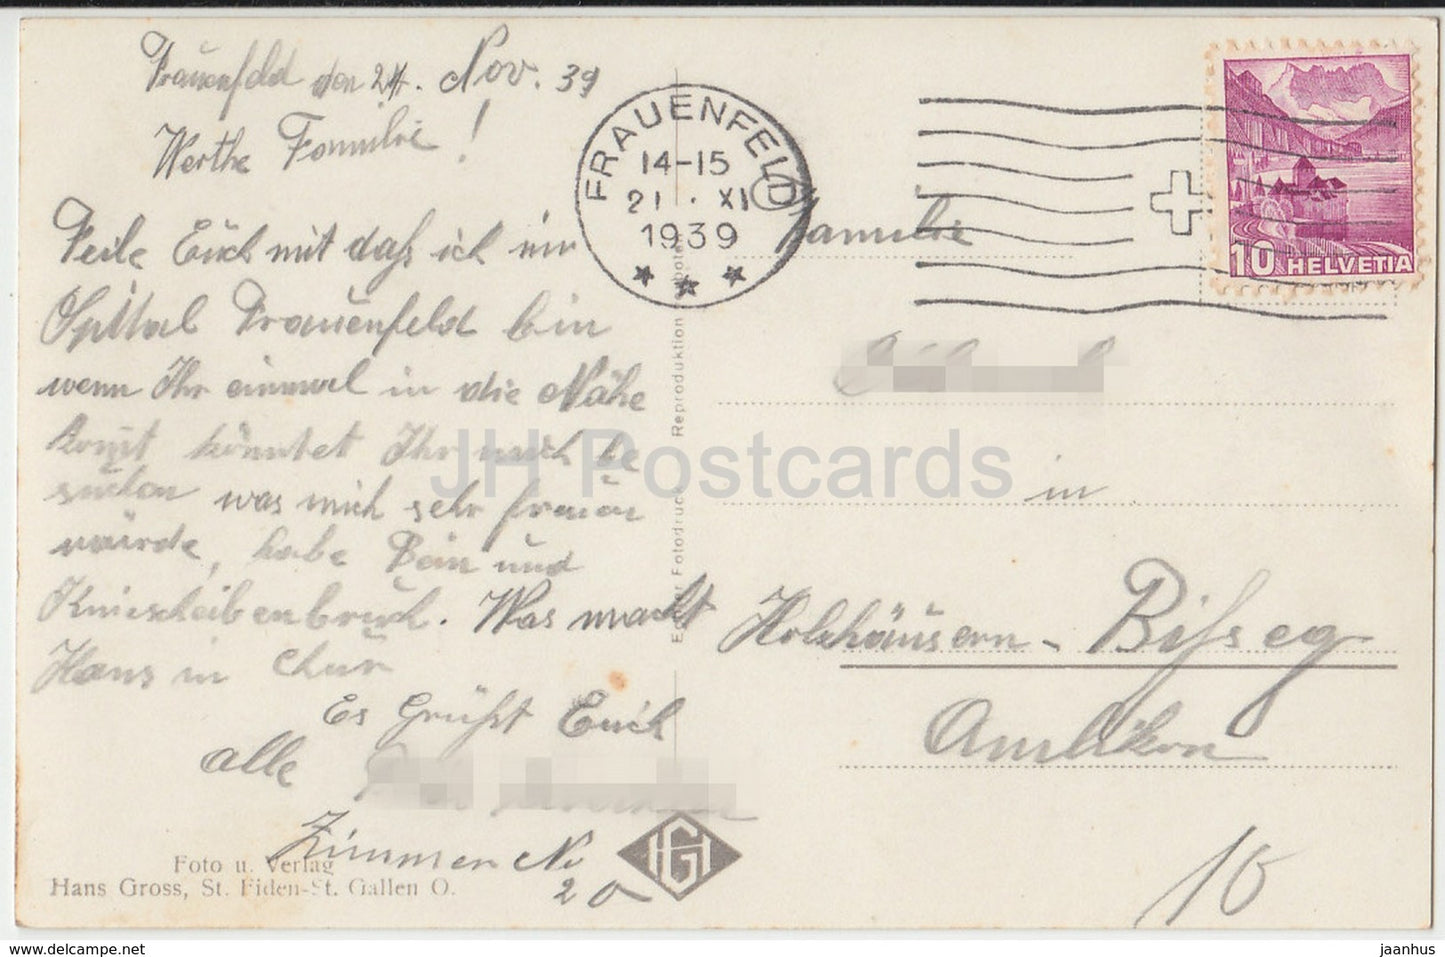 Frauenfeld den 21. Nov. 39
Werthe Familie!
Teile Euch mit daß ich im
Spittal Frauenfeld bin
wenn Ihr einmal in die Nähe
komt könntet Ihr mich be
suchen was mich sehr freuen
würde, habe Bein und
Kniescheibenbruch. Was macht
Hans in Chur
Es Grüßt Euch
alle
Zimmer No
20
Foto u. Verlag
Hans Gross, St. Fiden-St. Gallen O.
HG
Echter Fotodruck Reproduktion verboten
FRAUENFELD
14-15
21. XI
1939
10 HELVETIA
Familie
in
Holzhäusern - Bißegg
Amlikon
10
JH Postcards
www.delcampe.net
jaanhus